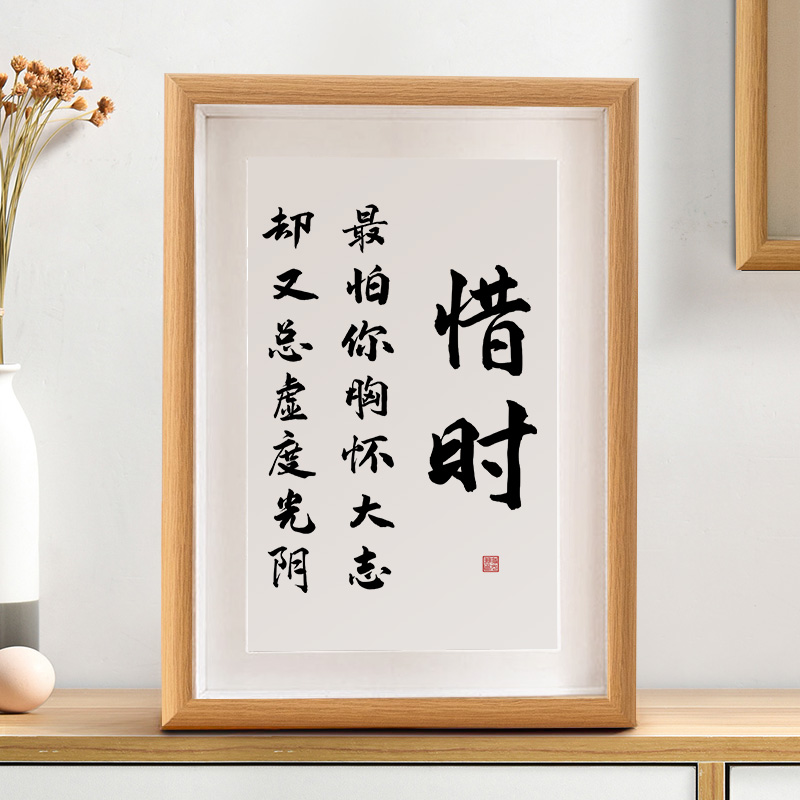 惜时
最怕你胸怀大志
却又总虚度光阴